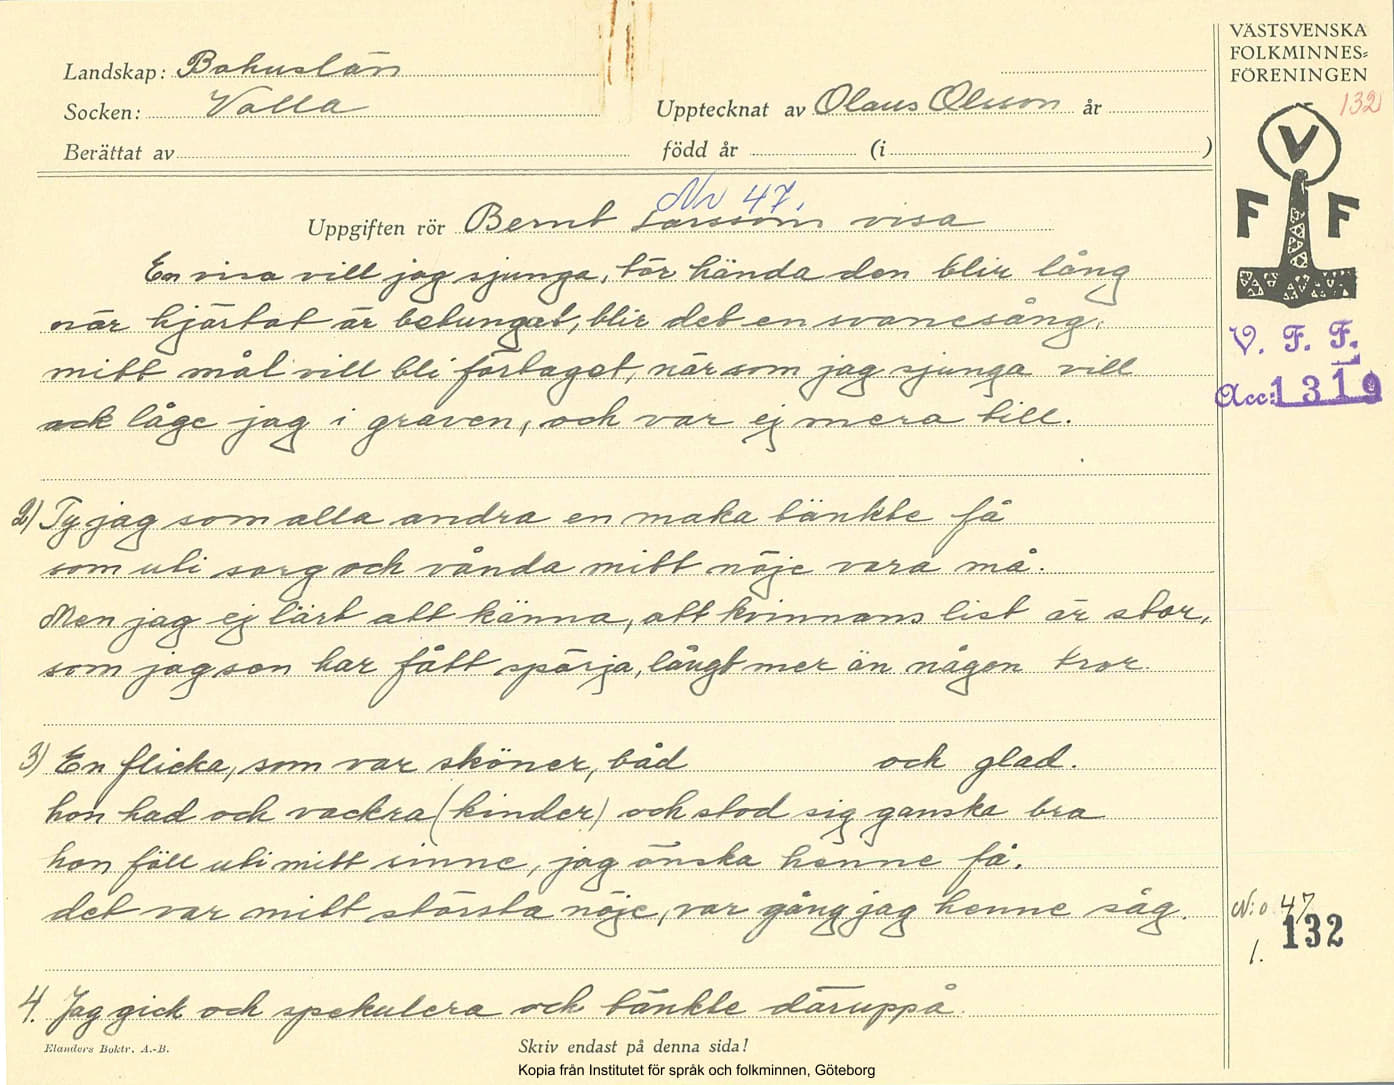 Landskap: Bohuslän
Socken: Valla
Upptecknat av Olaus Olsson år
Berättat av
född år (i )
Nr 47.
Uppgiften rör Bernt Larssons visa
En visa vill jag sjunga, tör hända den blir lång
när hjärtat är betungat, blir det en svanesång,
mitt mål vill bli förtaget, när som jag sjunga vill
ack låge jag i graven, och var ej mera till.
2) Ty jag som alla andra en maka tänkte få
som uti sorg och vånda mitt nöje vara må.
Men jag ej lärt att känna, att kvinnans list är stor,
som jag sen har fått spörja, långt mer än någon tror
3) En flicka, som var sköner, båd och glad.
hon had och vackra (kinder) och stod sig ganska bra
hon föll uti mitt sinne, jag önska henne få.
det var mitt största nöje, var gång jag henne såg.
4. Jag gick och spekulera och tänkte däruppå.
Elanders Boktr. A.-B.
Skriv endast på denna sida!
VÄSTSVENSKA
FOLKMINNES=
FÖRENINGEN
132
V
F F
V. F. F.
Acc: 1319
N:o 47
132
1.
Kopia från Institutet för språk och folkminnen, Göteborg